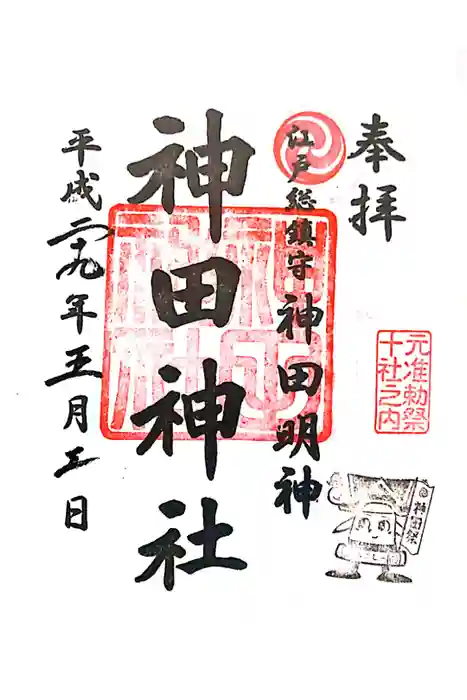 奉拝
元准勅祭
十社之内
神田祭
江戸総鎮守 神田明神
神田神社
平成二十九年五月五日